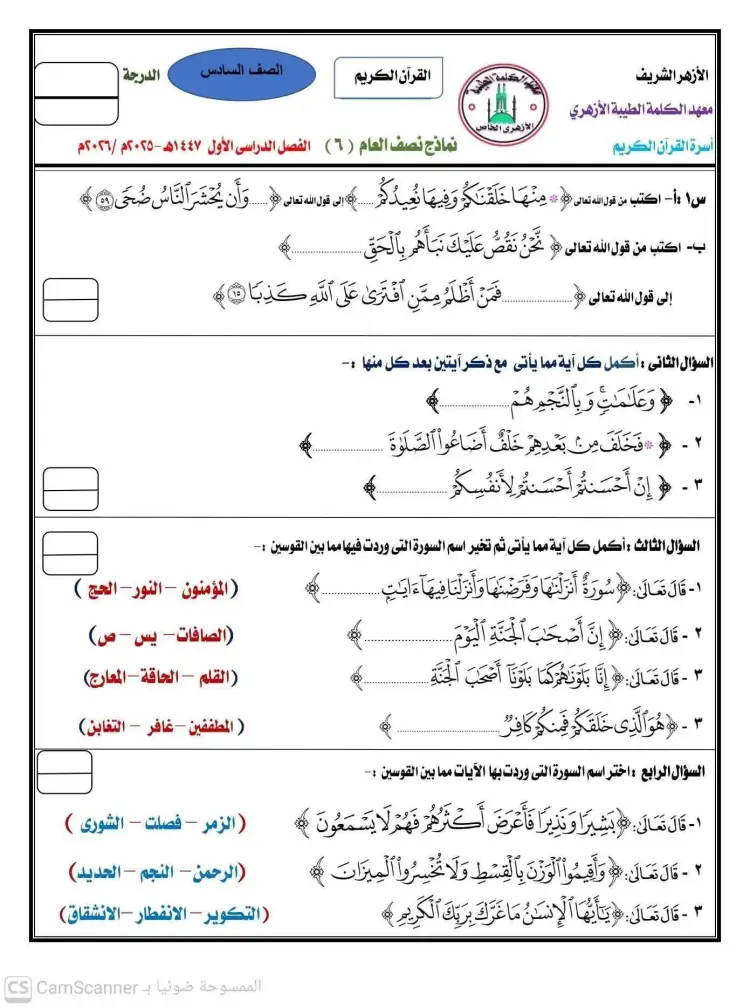 الأزهر الشريف
معهد الكلمة الطيبة الأزهري
أسرة القرآن الكريم
معهد الكلمة الطيبة
الأزهرى الخاص
القرآن الكريم
الصف السادس
الدرجة
نماذج نصف العام ( ٦ ) الفصل الدراسى الأول ١٤٤٧هـ -٢٠٢٥م /٢٠٢٦م
س١ :أ- اكتب من قول الله تعالى ﴿ * مِنْهَا خَلَقْنَاكُمْ وَفِيهَا نُعِيدُكُمْ .....﴾إلى قول الله تعالى ﴿ ......وَأَن يُحْشَرَ النَّاسُ ضُحًى ۝٥٩ ﴾
ب- اكتب من قول الله تعالى ﴿ نَّحْنُ نَقُصُّ عَلَيْكَ نَبَأَهُم بِالْحَقِّ ................﴾
إلى قول الله تعالى ﴿ ................فَمَنْ أَظْلَمُ مِمَّنِ افْتَرَىٰ عَلَى اللَّهِ كَذِبًا ۝١٥ ﴾
السؤال الثانى : أكمل كل آية مما يأتى مع ذكر آيتين بعد كل منها :-
١- ﴿ وَعَلَامَاتٍ ۚ وَبِالنَّجْمِ هُمْ ................﴾
٢ - ﴿ * فَخَلَفَ مِن بَعْدِهِمْ خَلْفٌ أَضَاعُوا الصَّلَوٰةَ ................﴾
٣ - ﴿ إِنْ أَحْسَنتُمْ أَحْسَنتُمْ لِأَنفُسِكُمْ ................﴾
السؤال الثالث : أكمل كل آية مما يأتى ثم تخير اسم السورة التى وردت فيها مما بين القوسين :-
١- قَالَ تَعَالَىٰ: ﴿ سُورَةٌ أَنزَلْنَاهَا وَفَرَضْنَاهَا وَأَنزَلْنَا فِيهَا ءَايَاتٍ ................﴾ (المؤمنون – النور– الحج )
٢ - قَالَ تَعَالَىٰ: ﴿ إِنَّ أَصْحَابَ الْجَنَّةِ الْيَوْمَ ................﴾ (الصافات– يس – ص)
٣ - قَالَ تَعَالَىٰ: ﴿ إِنَّا بَلَوْنَاهُمْ كَمَا بَلَوْنَا أَصْحَابَ الْجَنَّةِ ................﴾ (القلم – الحاقة– المعارج)
٣ - ﴿ هُوَ الَّذِى خَلَقَكُمْ فَمِنكُمْ كَافِرٌ ................﴾ ( المطففين – غافر – التغابن )
السؤال الرابع : اختر اسم السورة التى وردت بها الآيات مما بين القوسين :-
١- قَالَ تَعَالَىٰ: ﴿ بَشِيرًا وَنَذِيرًا فَأَعْرَضَ أَكْثَرُهُمْ فَهُمْ لَا يَسْمَعُونَ ﴾ (الزمر – فصلت – الشورى )
٢ - قَالَ تَعَالَىٰ: ﴿ وَأَقِيمُوا الْوَزْنَ بِالْقِسْطِ وَلَا تُخْسِرُوا الْمِيزَانَ ﴾ (الرحمن– النجم – الحديد)
٣ - قَالَ تَعَالَىٰ: ﴿ يَٰٓأَيُّهَا الْإِنسَٰنُ مَا غَرَّكَ بِرَبِّكَ الْكَرِيمِ ﴾ (التكوير– الانفطار –الانشقاق)
CS CamScanner الممسوحة ضوئيا بـ